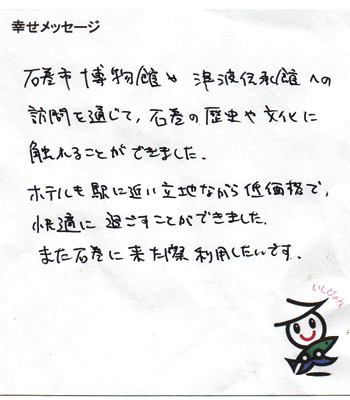 幸せメッセージ
石巻市博物館や津波伝承館への
訪問を通じて、石巻の歴史や文化に
触れることができました。
ホテルも駅に近い立地ながら低価格で、
快適に過ごすことができました。
また石巻に来た際利用したいです。
いしぴょん